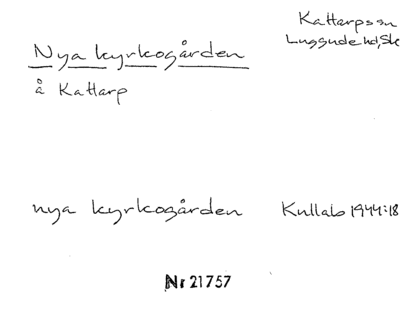 Nya kyrkogården
å Kattarp
Kattarps sn
Luggude hd, Sk
nya kyrkogården
Kullab 1944:18
Nr 21757